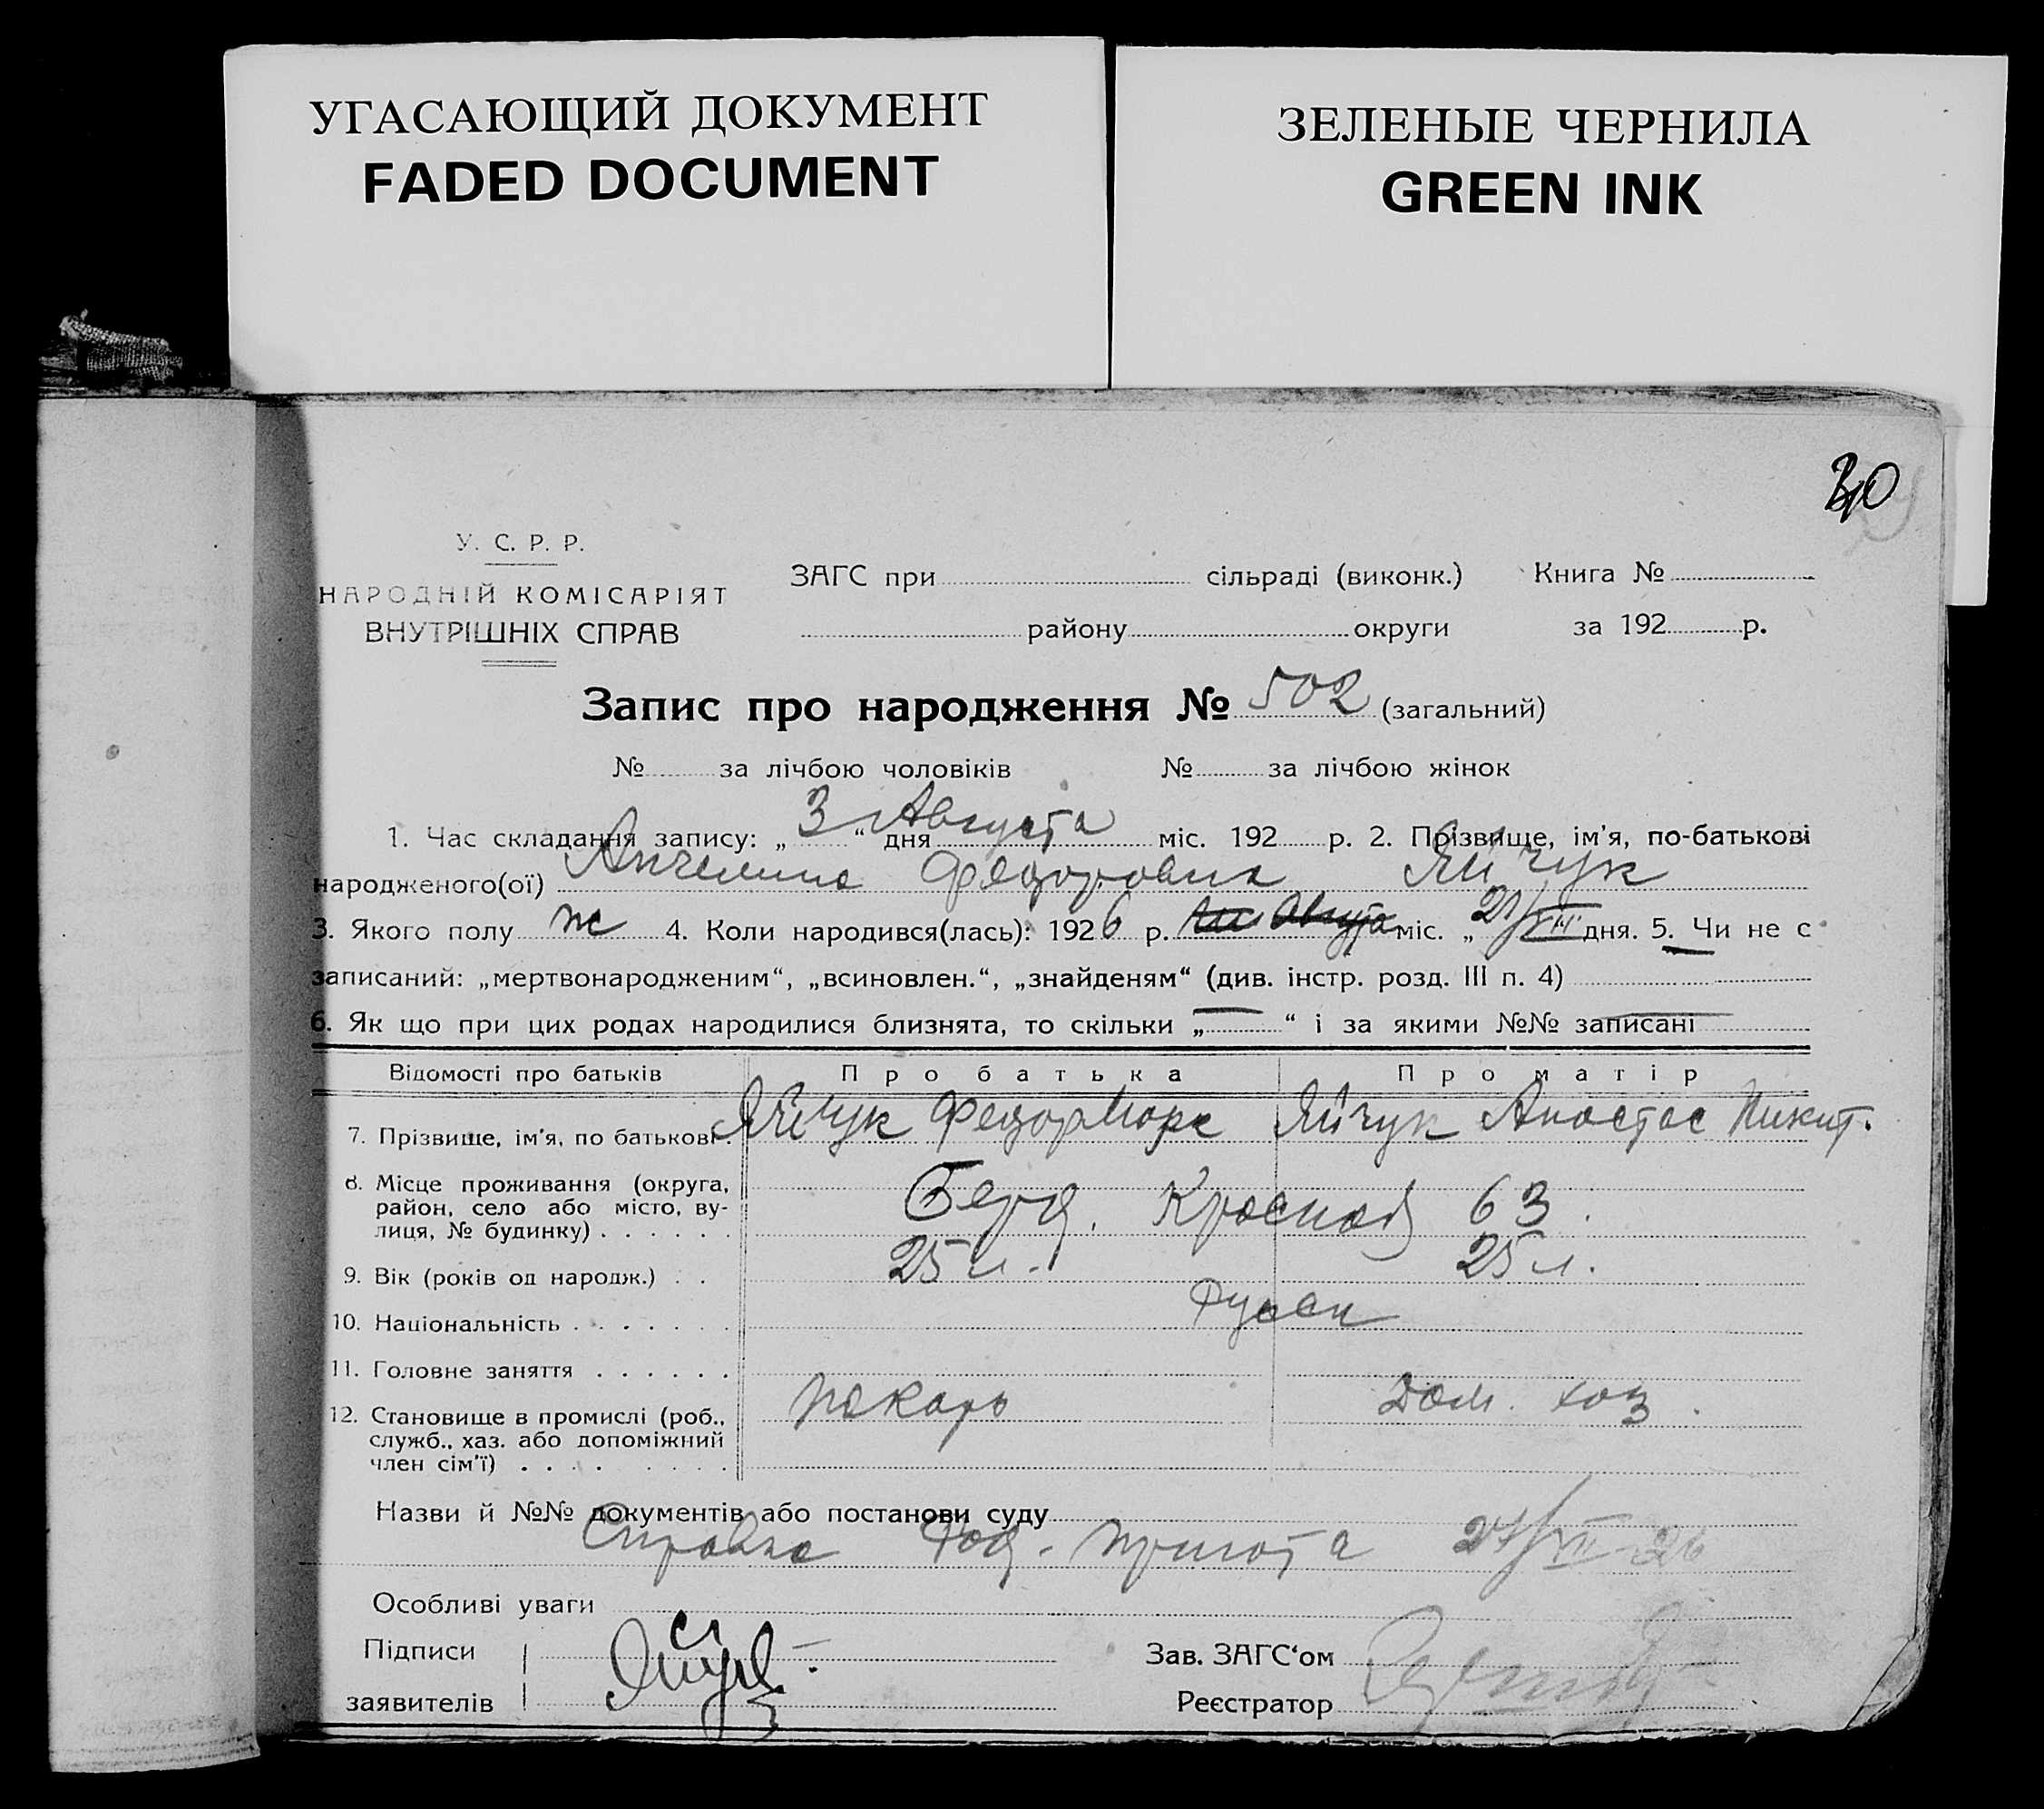 УГАСАЮЩИЙ ДОКУМЕНТ
FADED DOCUMENT
ЗЕЛЕНЫЕ ЧЕРНИЛА
GREEN INK
У. С. Р. Р.
НАРОДНІЙ КОМІСАРІЯТ
ВНУТРІШНІХ СПРАВ
ЗАГС при сільраді (виконк.) Книга №
району округи за 192 р.
Запис про народження № 502 (загальний)
№ за лічбою чоловіків № за лічбою жінок
1. Час складання запису: „ 3 “ дня Августа міс. 192 р. 2. Прізвище, ім’я, по-батькові
народженого(ої) Ангелина Федоровна Яйчук
3. Якого полу ж 4. Коли народився(лась): 1926 р. міс. „ 21/VII дня. 5. Чи не є
записаний: „мертвонародженим“, „всиновлен.“, „знайденям“ (див. інстр. розд. III п. 4)
6. Як що при цих родах народилися близнята, то скільки „ “ і за якими №№ записані
Відомості про батьків Про батька Про матір
7. Прізвище, ім’я, по батькові. Яйчук Федор Марк Яйчук Анастас Никит.
8. Місце проживання (округа,
район, село або місто, ву-
лиця, № будинку) . . . . . . Берд. Красная 63.
9. Вік (років од народж.) . . 25 л. 25 л.
10. Національність . . . . . . . Русск
11. Головне заняття . . . . . .
пекарь Дом. хоз.
12. Становище в промислі (роб.,
служб., хаз. або допоміжний
член сім’ї) . . . . . . . .
Назви й №№ документів або постанови суду
Справка Род. приюта 27/VII 26
Особливі уваги
Підписи
заявителів
Зав. ЗАГС‘ом
Реєстратор